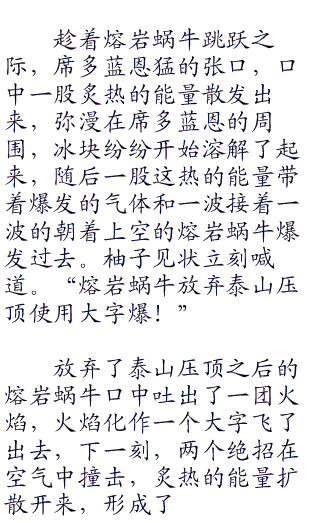 趁着熔岩蜗牛跳跃之
际，席多蓝恩猛的张口，口
中一股炙热的能量散发出
来，弥漫在席多蓝恩的周
围，冰块纷纷开始溶解了起
来，随后一股这热的能量带
着爆发的气体和一波接着一
波的朝着上空的熔岩蜗牛爆
发过去。柚子见状立刻喊
道。“熔岩蜗牛放弃泰山压
顶使用大字爆！”
放弃了泰山压顶之后的
熔岩蜗牛口中吐出了一团火
焰，火焰化作一个大字飞了
出去，下一刻，两个绝招在
空气中撞击，炙热的能量扩
散开来，形成了